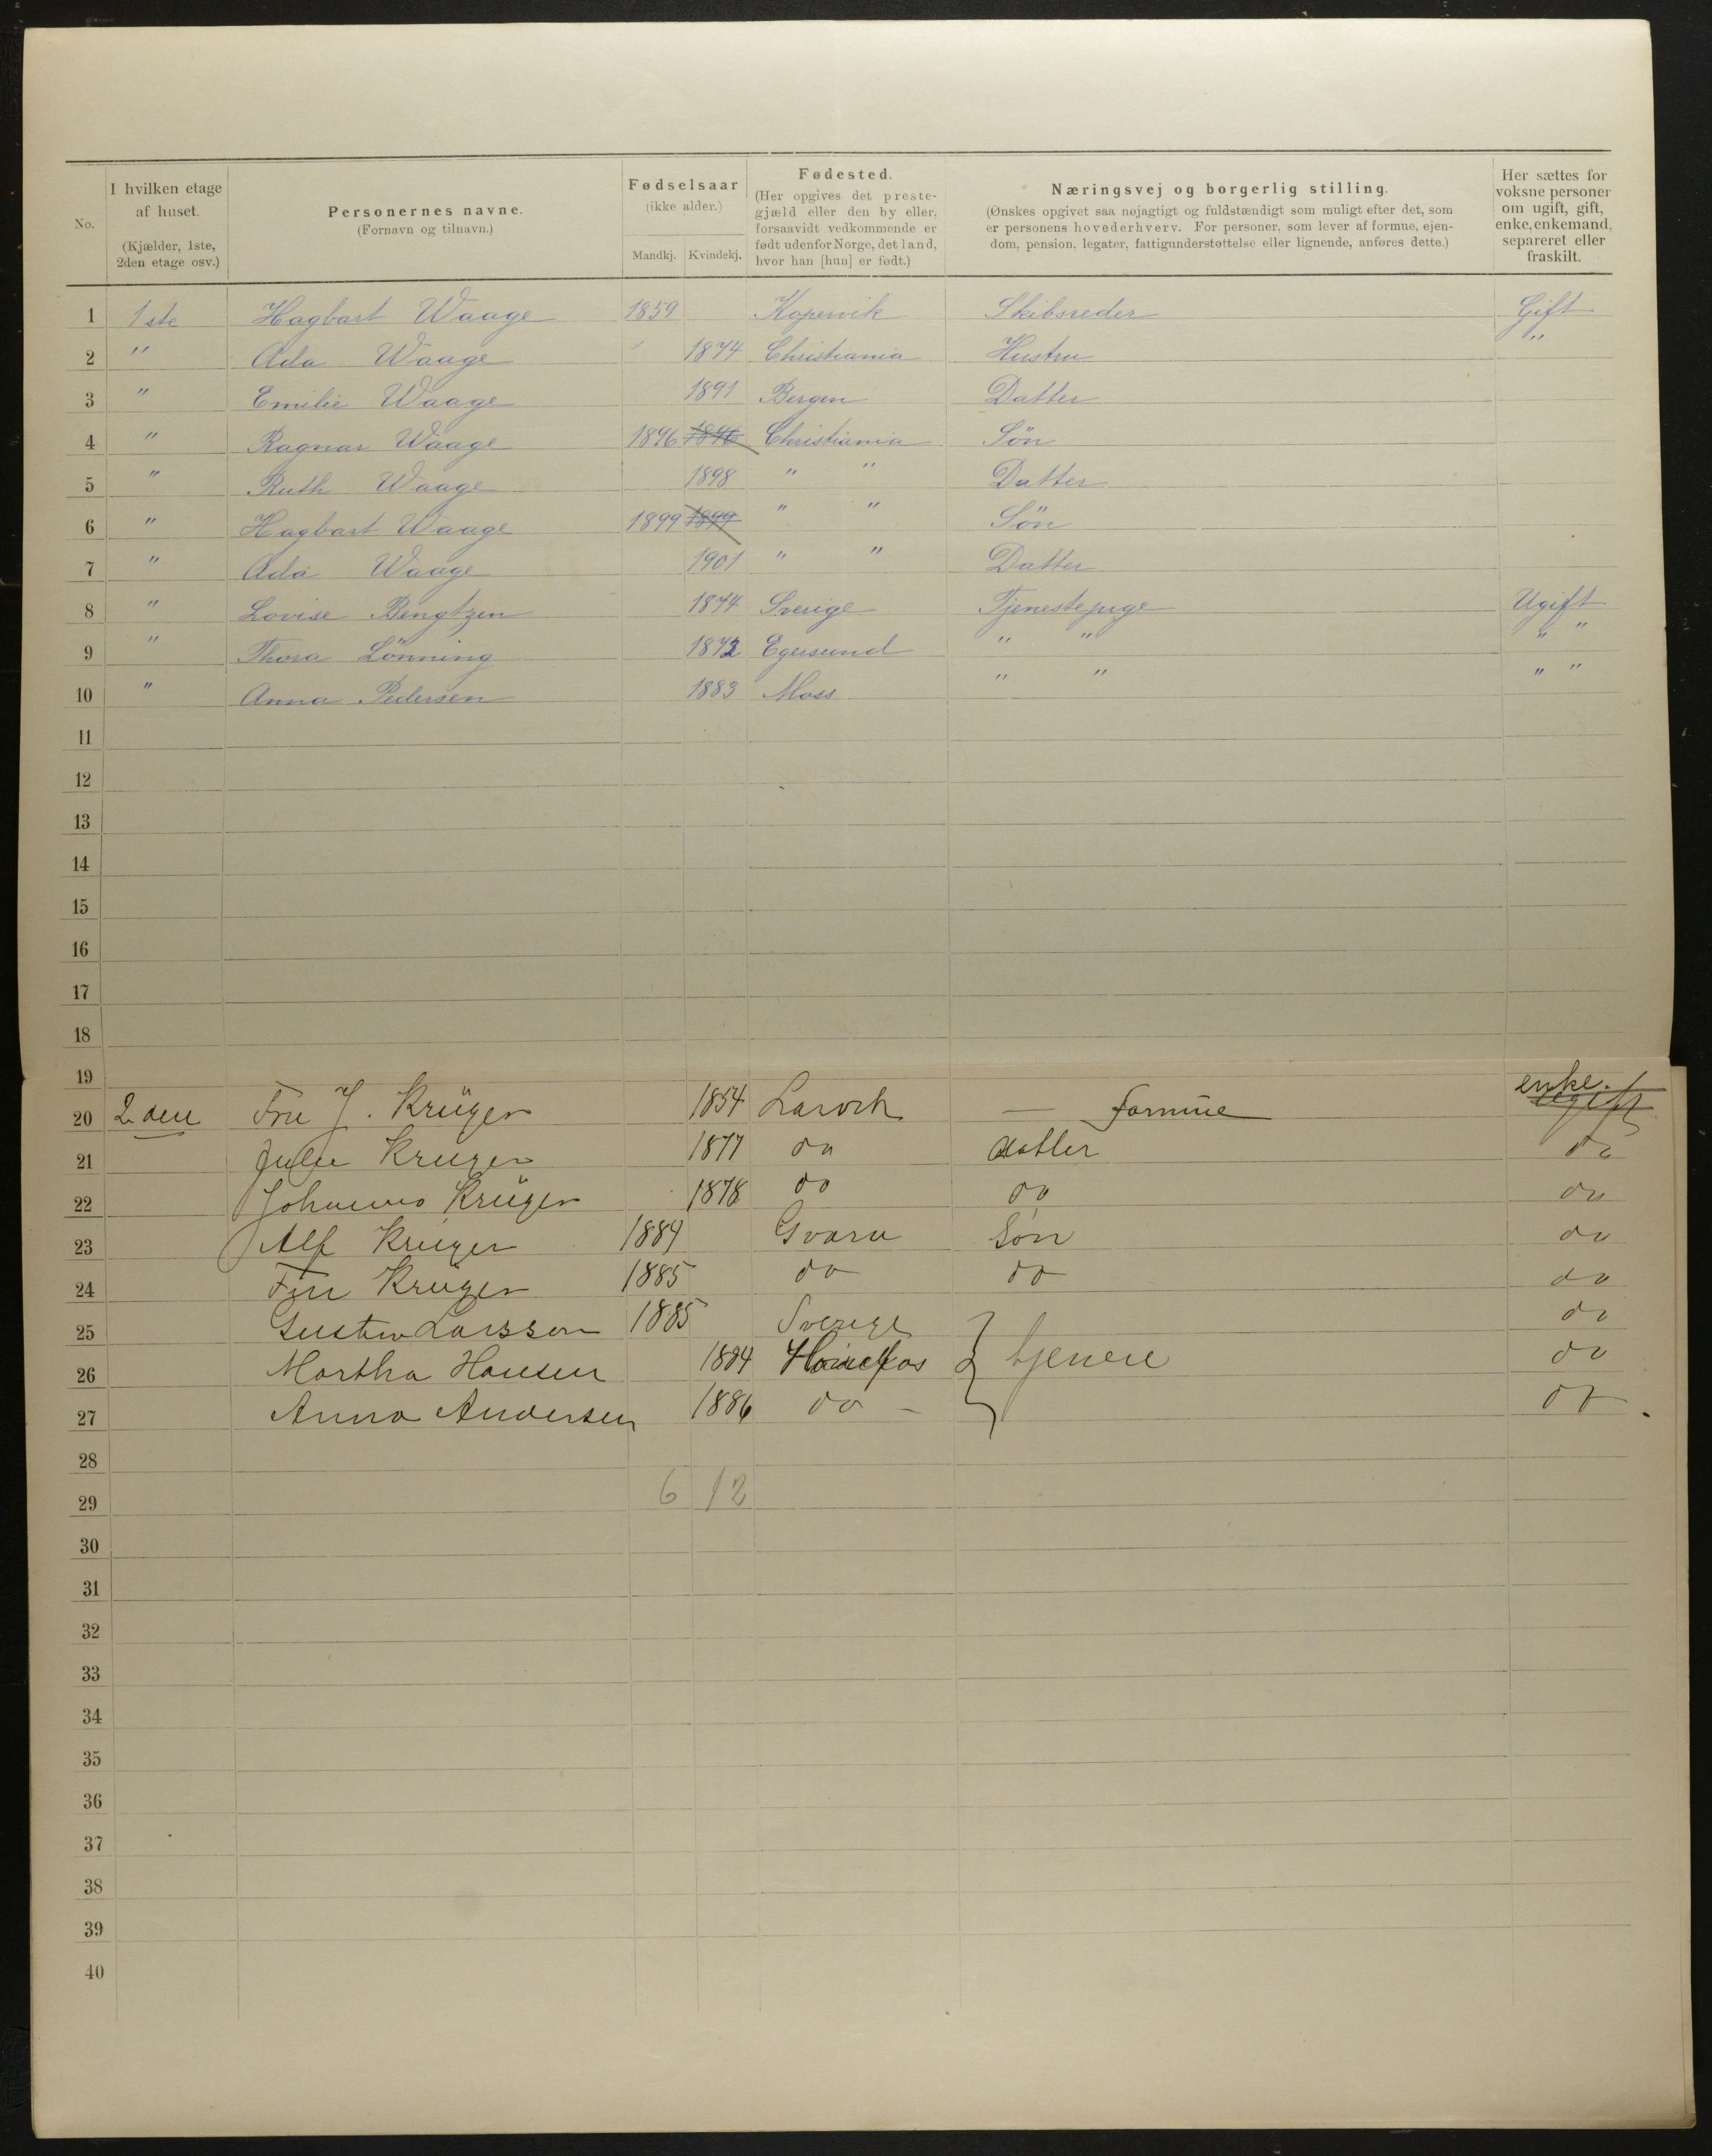 No.
I hvilken etage af huset. (Kjælder, 1ste, 2den etage osv.)
Personernes navne. (Fornavn og tilnavn.)
Fødselsaar (ikke alder.) Mandkj. Kvindekj.
Fødested. (Her opgives det prestegjæld eller den by eller, forsaavidt vedkommende er født udenfor Norge, det land, hvor han [hun] er født.)
Næringsvej og borgerlig stilling. (Ønskes opgivet saa nøjagtigt og fuldstændigt som muligt efter det, som er personens hovederhverv. For personer, som lever af formue, ejendom, pension, legater, fattigunderstøttelse eller lignende, anføres dette.)
Her sættes for voksne personer om ugift, gift, enke, enkemand, separeret eller fraskilt.
1 1ste Hagbart Waage 1859 Kopervik Skibsreder Gift
2 " Ada Waage 1874 Christiania Hustru "
3 " Emilie Waage 1891 Bergen Datter
4 " Ragnar Waage 1896 1896 Christiania Sön
5 " Ruth Waage 1898 " " Datter
6 " Hagbart Waage 1899 1899 " " Sön
7 " Ada Waage 1901 " " Datter
8 " Lovise Bengtzen 1874 Sverige Tjenestepige Ugift
9 " Thora Lönning 1872 Egersund " " " "
10 " Anna Pedersen 1883 Moss " " " "
11
12
13
14
15
16
17
18
19
20 2den Fru J. Krüger 1854 Larvik — formue enke. Ugift
21 Julie Krüger 1877 do datter do
22 Krüger 1878 do do do
23 Alf Krüger 1884 Søn do
24 Krüger 1885 do do do
25 Gustav Larsson 1885 Sverige do
26 Martha Hansen 1884 Hønefos } tjenere do
27 Anna Andersen 1886 do - do
28
29 6 12
30
31
32
33
34
35
36
37
38
39
40